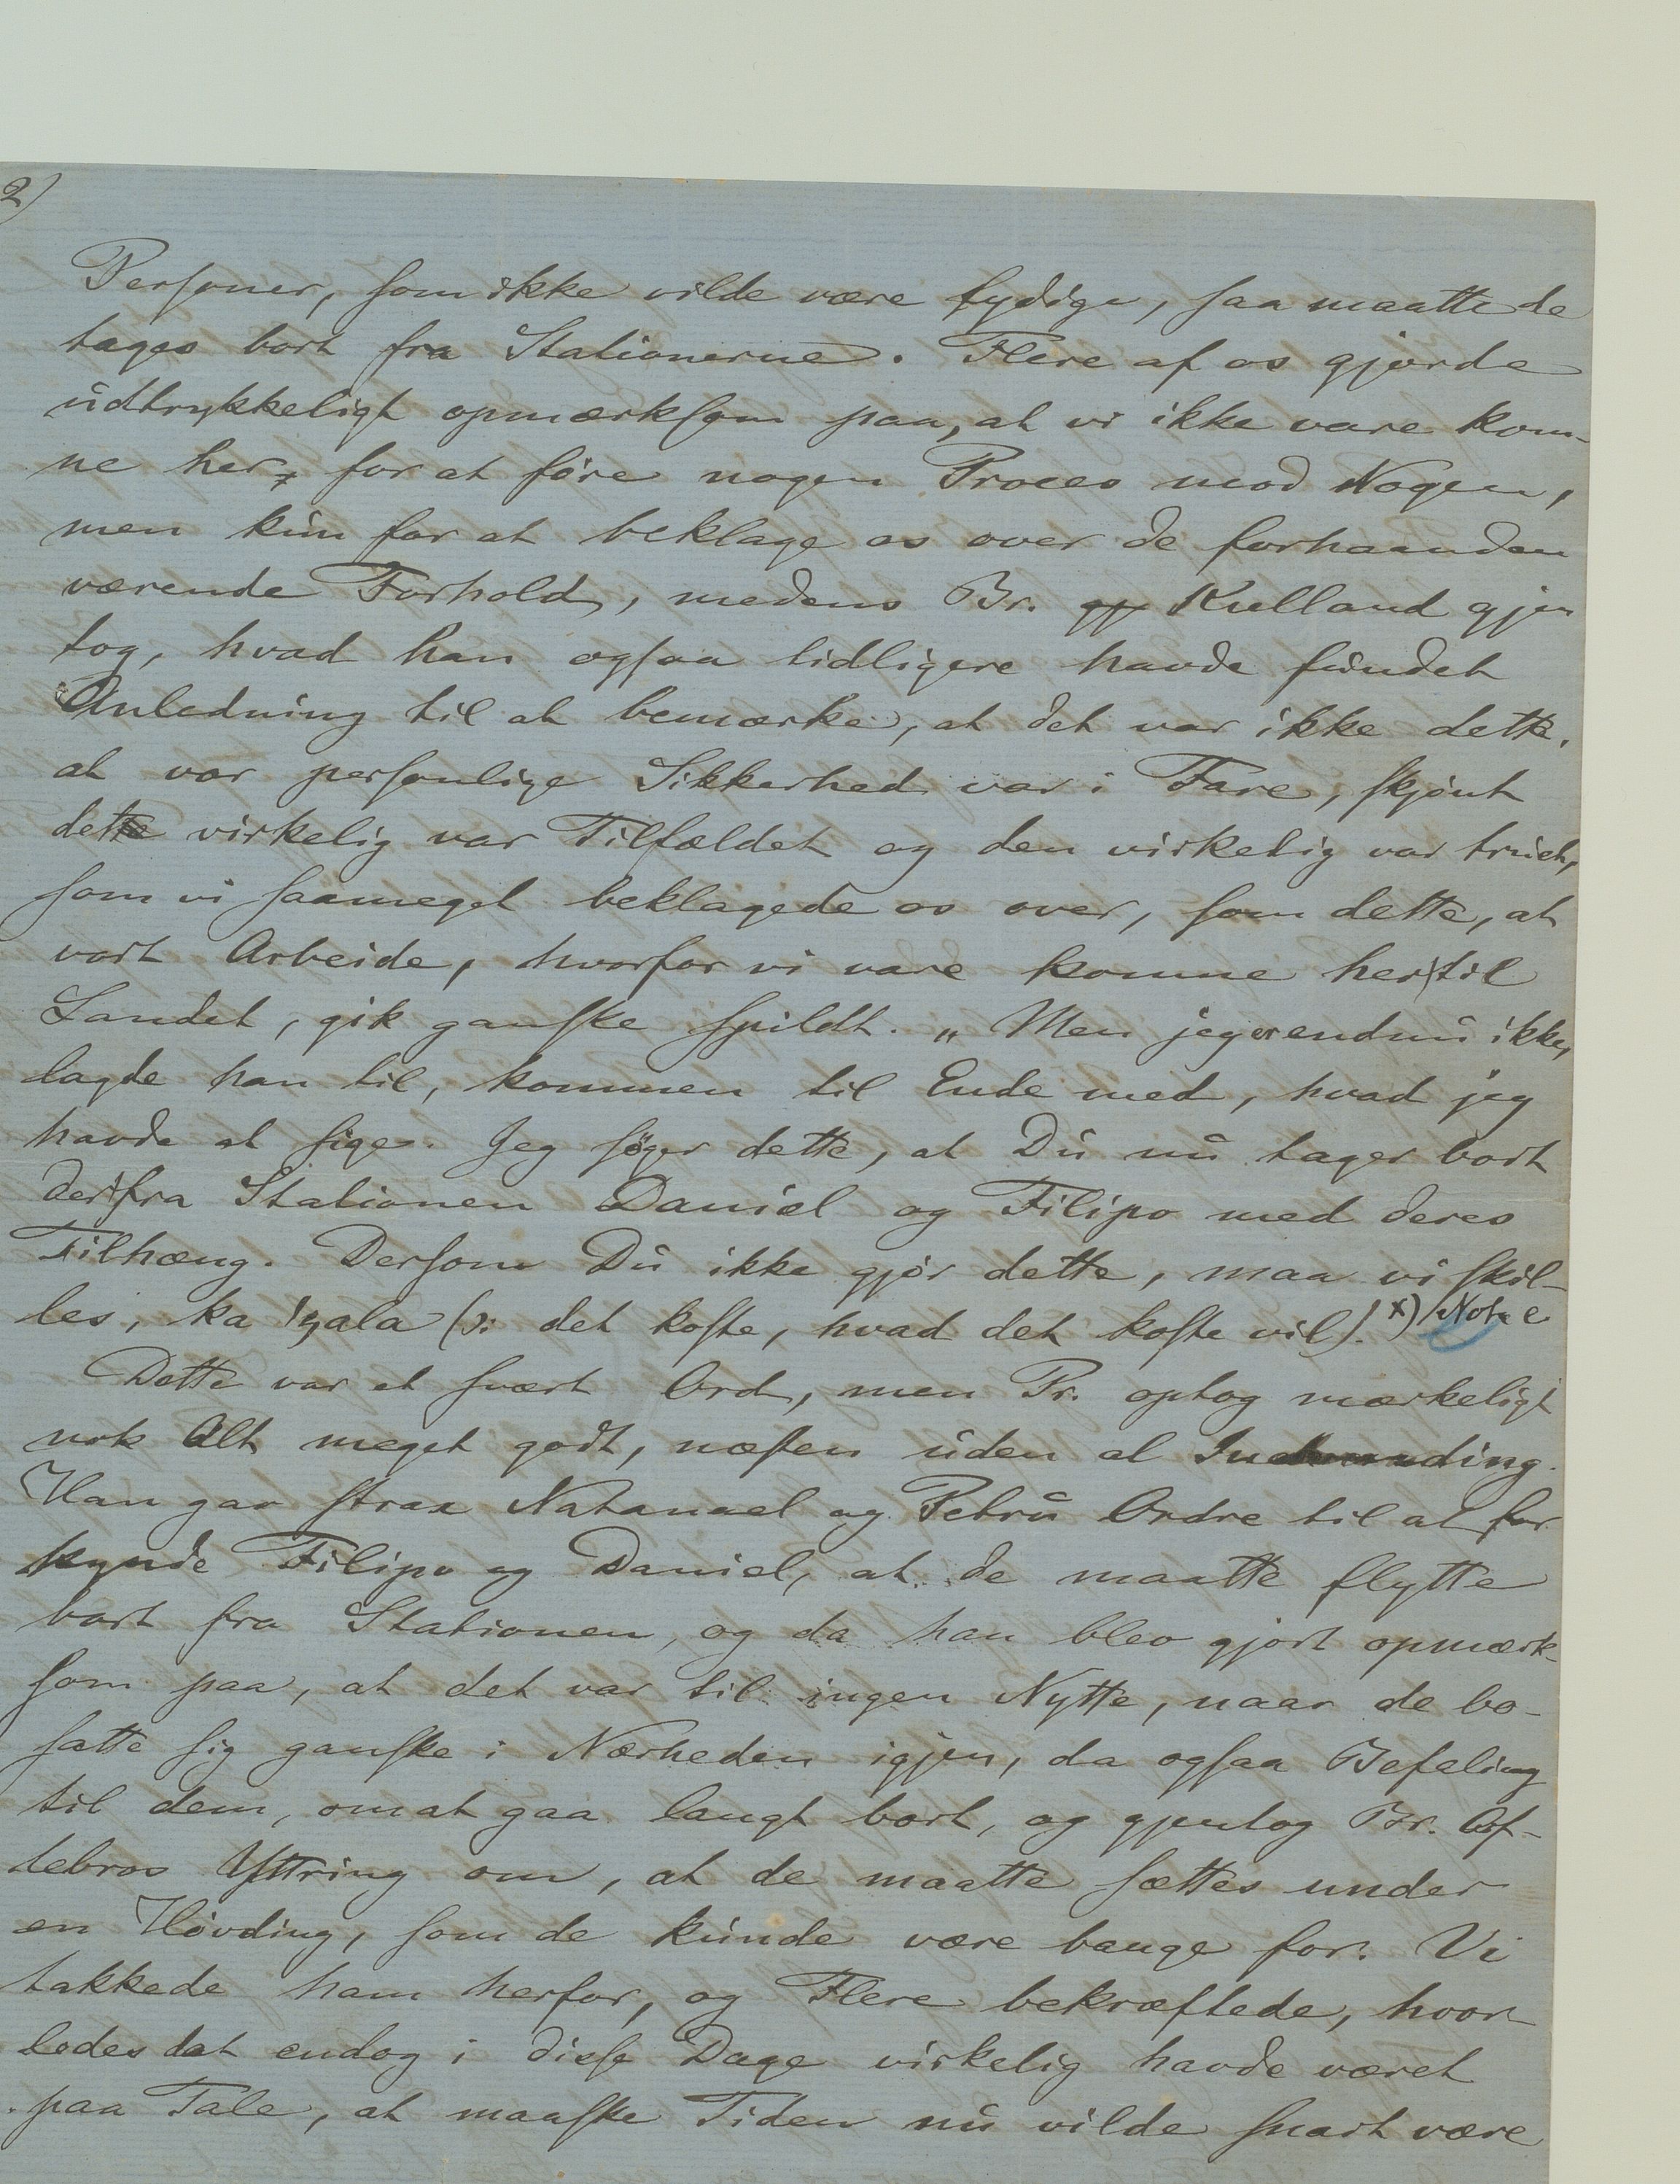 2)
Personer, som ikke vilde være lydige, saa maatte de
tages bort fra Stationerne. Flere af os gjorde
udtrykkeligt opmærksom paa, at vi ikke vare kom-
ne her, for at føre nogen Proces mod Nogen,
men kun for at beklage os over de forhaanden
værende Forhold, medens Br. Kielland gjen
tog, hvad han ogsaa tidligere havde fundet
Anledning til at bemærke, at det var ikke dette,
at vor personlige Sikkerhed var i Fare, skjønt
dette virkelig var Tilfældet og den virkelig var truet,
som vi saameget beklagede os over, som dette, at
vort Arbeide, hvorfor vi vare komne her til
Landet, gik ganske spildt. „Men jeg er endnu ikke,
lagde han til, kommen til Ende med, hvad jeg
havde at sige. Jeg søger dette, at Du nu tager bort
der fra Stationen Daniel og Filipo med deres
Tilhæng. Dersom Du ikke gjør dette, maa vi skil-
les, ka (ɔ: det koste, hvad det koste vil). x) Note
Dette var et svært Ord, men Pr. optog mærkeligt
nok Alt meget godt, næsten uden al Indvending.
Han gav strax Natanael og Petru Ordre til at for
kynde Filipo og Daniel, at de maatte flytte
bort fra Stationen, og da han blev gjort opmærk-
som paa, at det var til ingen Nytte, naar de bo-
satte sig ganske i Nærheden igjen, da ogsaa Befaling
til dem, om at gaa langt bort, og gjentog Br. Af-
tebros Yttring om, at de maatte sættes under
en Høvding, som de kunde være bange for. Vi
takkede ham herfor, og Flere bekræftede, hvor
ledes det endog i disse Dage virkelig havde været
paa Tale, at maaske Tiden nu vilde snart være